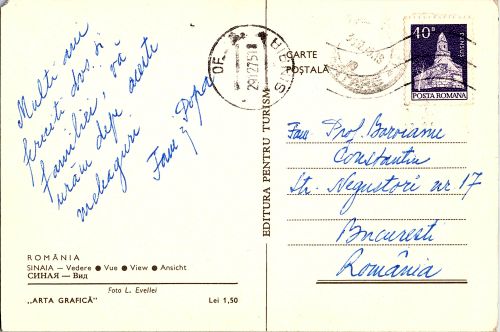 Multi ani
fericiti dvs. si
familiei, vă
urăm depe aceste
meleaguri
Fam Popa
ROMÂNIA
SINAIA — Vedere ● Vue ● View ● Ansicht
СИНАЯ — Вид
Foto L. Evellei
„ARTA GRAFICĂ"
Lei 1,50
EDITURA PENTRU TURISM
29.12.75
CARTE
POȘTALĂ
40B
DENSUȘ
POSTA ROMANA
Fam Prof. Boroianu
Constantin
Str. Negustori nr 17
București
România